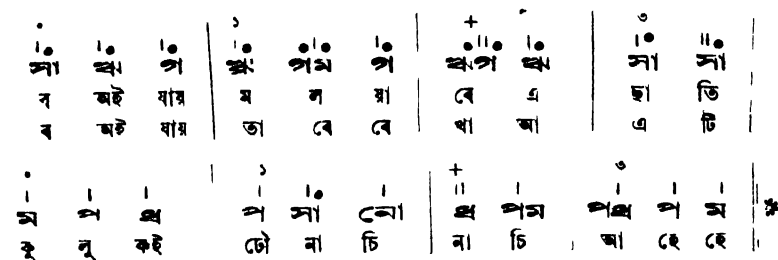 ০ ১ + ৩
সা ঋ গ | ঋ গম গ | ঋগ ঋ | সা সা |
ব অই যায় ম ল য়া বে এ ছা তি
ব অই যায় তা বে বে খা আ এ টি
০ ১ + ৩
ম প ধ | প সা নো | ধ পম | পধ প ম ||
কু লু কই ঢৌ না চি না চি আ হে হে